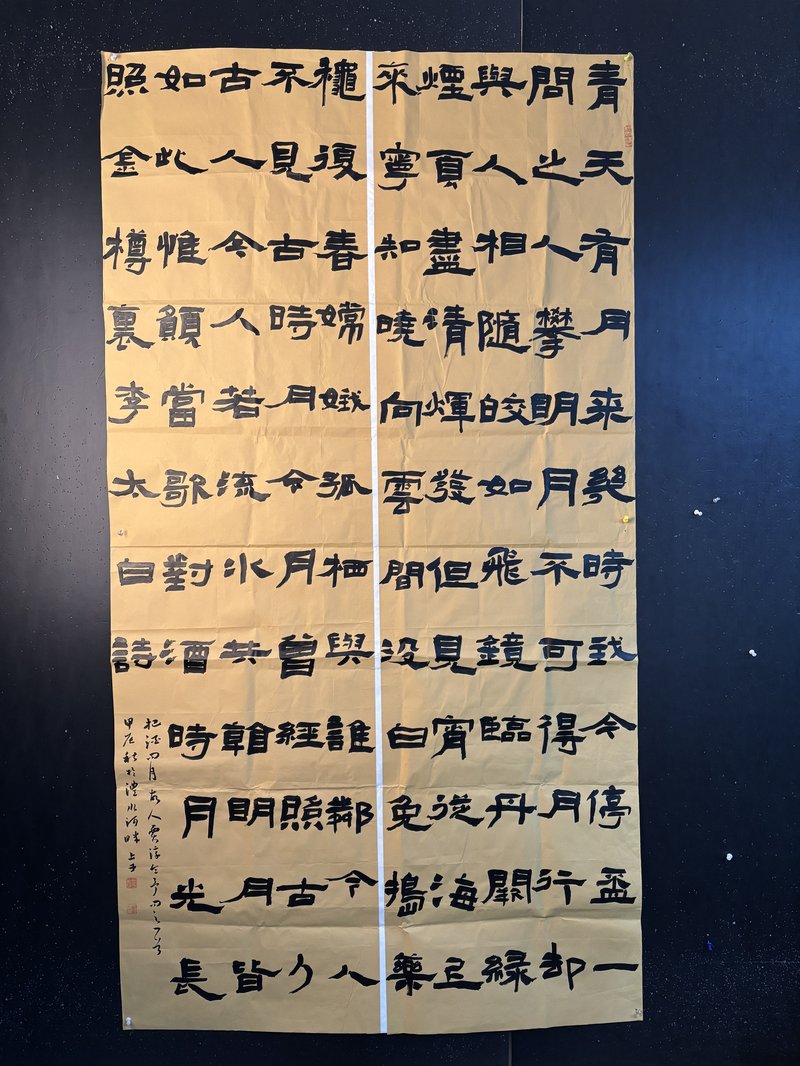 青天有月来幾時我今停盃一
問之人攀明月不可得月行却
與人相隨皎如飛鏡臨丹闕緑
煙盡清煇發但見宵從海上
来寧知曉向雲間没白兔搗藥
龝復春嫦娥孤栖與誰鄰今人
不見古時月今月曾經照古人
古人今人若流水共看明月皆
如此惟願當歌對酒時月光長
照金樽裏李太白詩
把酒問月故人賈淳令予問之一首
甲辰秋於澧水河畔